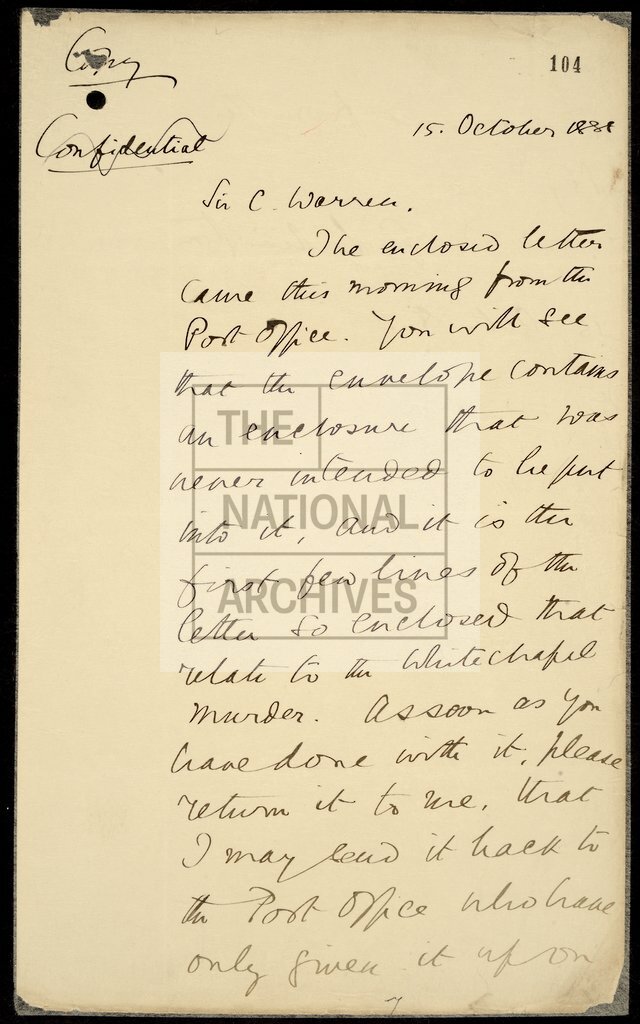 Copy
104
Confidential
15. October 1888
Sir C. Warren.
The enclosed letter
came this morning from the
Post Office. You will see
that the envelope contains
an enclosure that was
never intended to be put
into it, and it is the
first few lines of the
letter so enclosed that
relate to the Whitechapel
Murder. As soon as you
have done with it, please
return it to me, that
I may send it back to
the Post Office who have
only given it up on
THE
NATIONAL
ARCHIVES